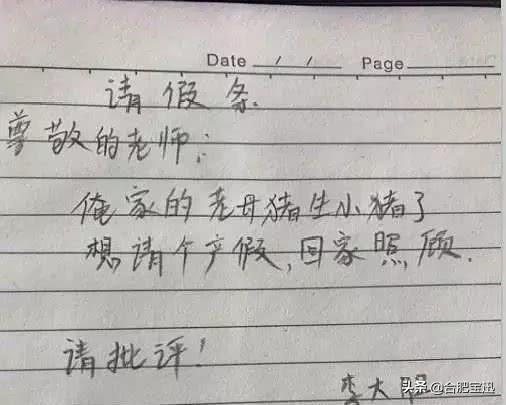 Date / / Page
请假条
尊敬的老师：
俺家的老母猪生小猪了
想请个产假，回家照顾.
请批评！
李大
头条 @合肥宝迅